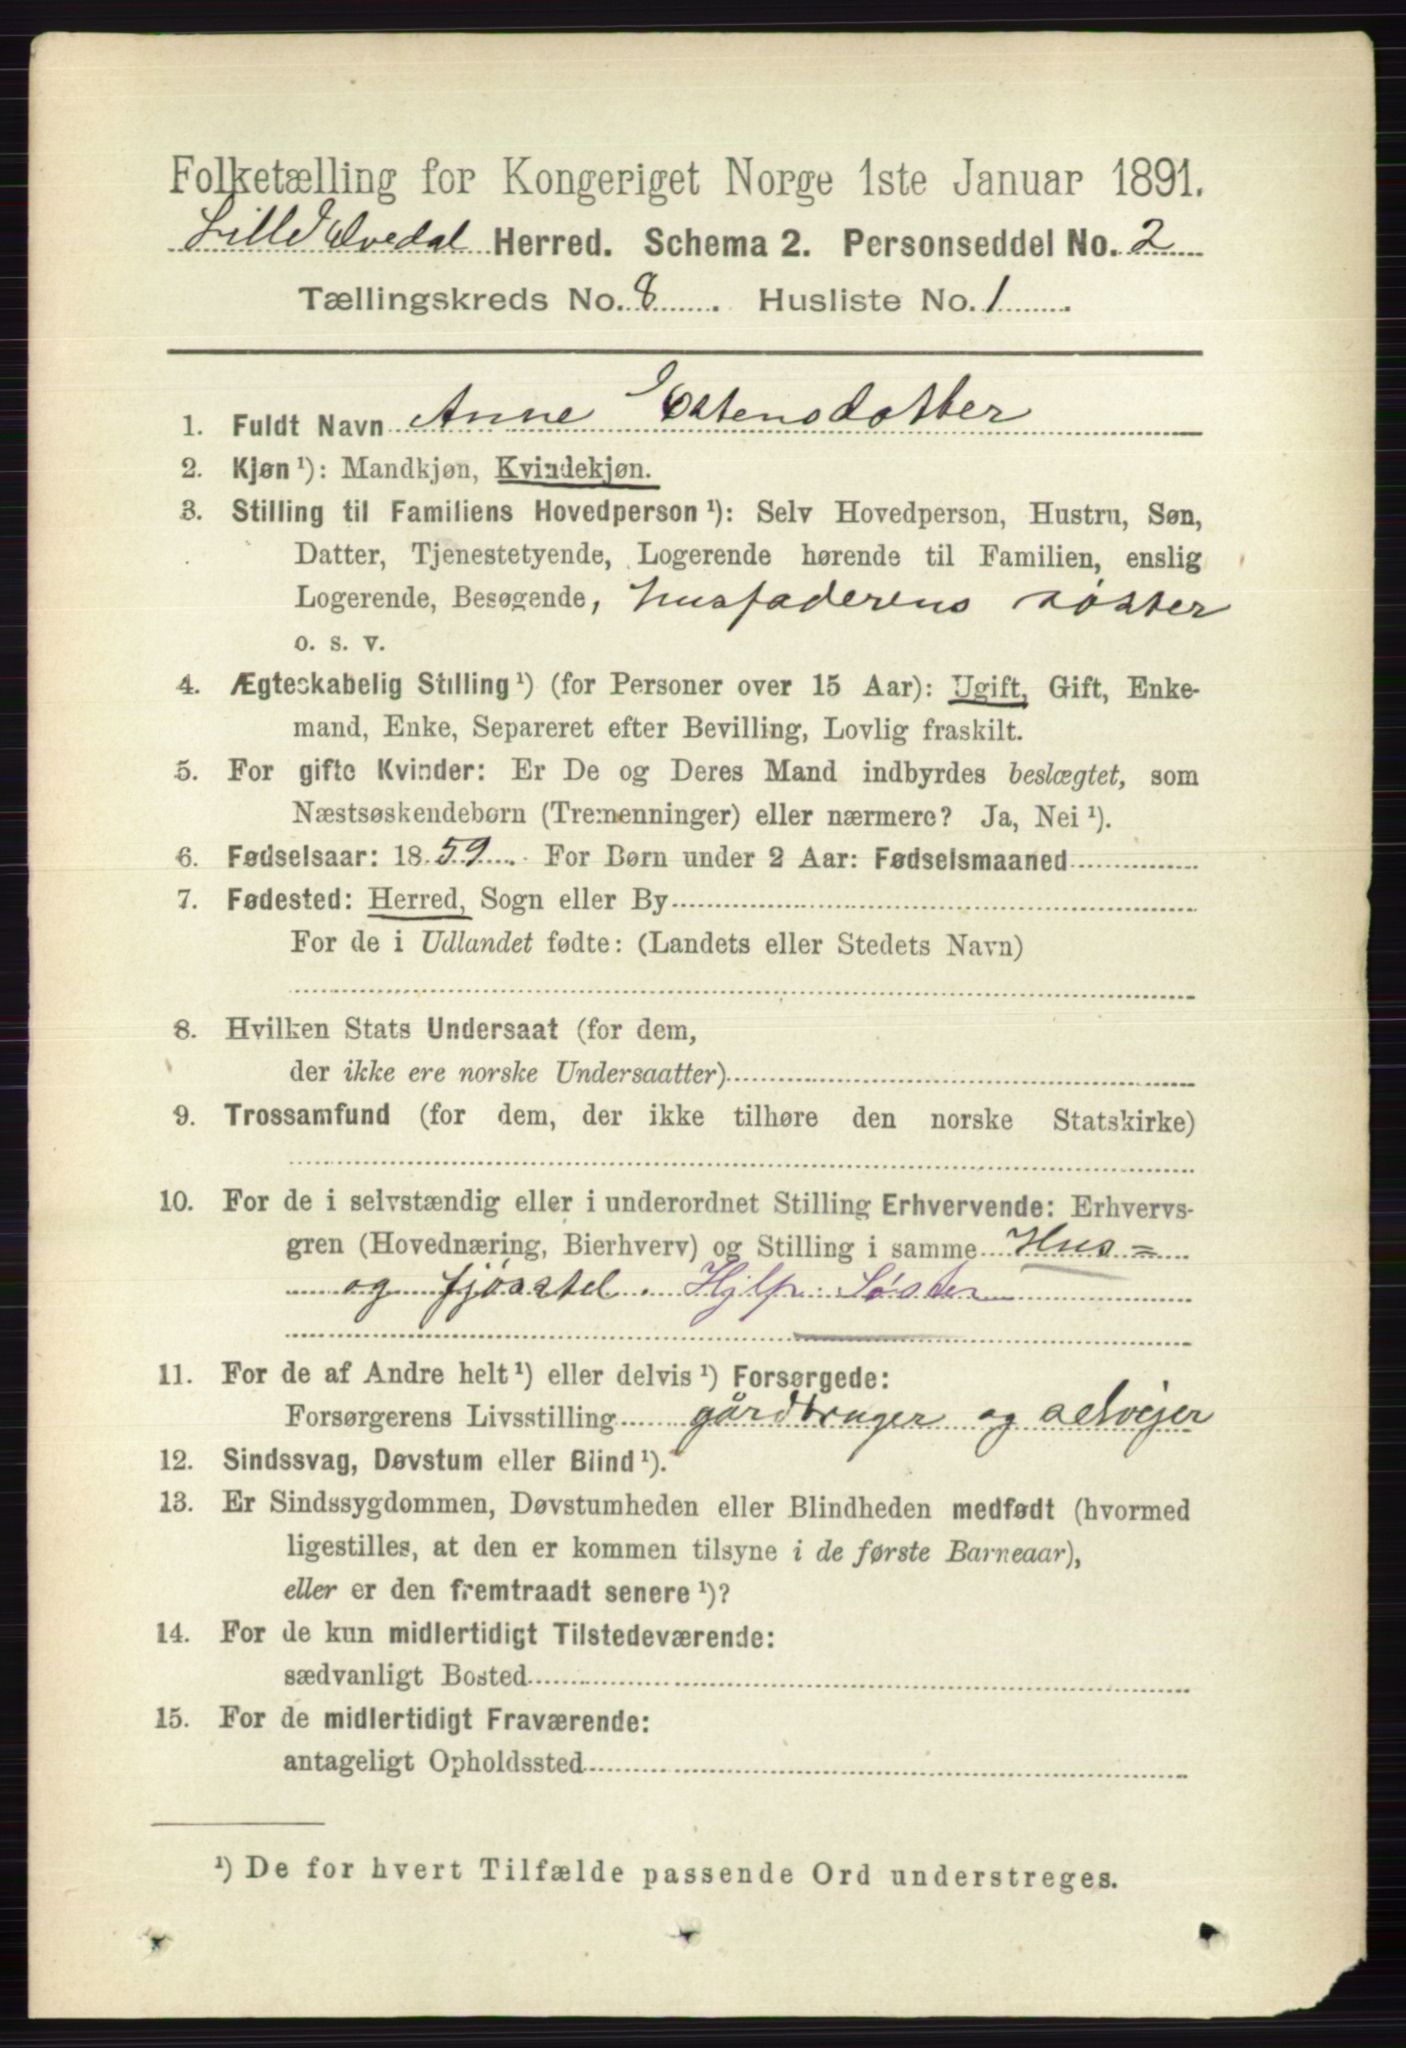 Folketælling for Kongeriget Norge 1ste Januar 1891.
Lille Elvedal Herred. Schema 2. Personseddel No. 2
Tællingskreds No. 8 . Husliste No. 1 .
1. Fuldt Navn Anne Estensdotter
2. Kjøn ¹): Mandkjøn, Kvindekjøn.
3. Stilling til Familiens Hovedperson ¹): Selv Hovedperson, Hustru, Søn,
Datter, Tjenestetyende, Logerende hørende til Familien, enslig
Logerende, Besøgende, husfaderens søster
o. s. v.
4. Ægteskabelig Stilling ¹) (for Personer over 15 Aar): Ugift, Gift, Enke-
mand, Enke, Separeret efter Bevilling, Lovlig fraskilt.
5. For gifte Kvinder: Er De og Deres Mand indbyrdes beslægtet, som
Næstsøskendebørn (Tremenninger) eller nærmere? Ja, Nei ¹).
6. Fødselsaar: 1859. For Børn under 2 Aar: Fødselsmaaned
7. Fødested: Herred, Sogn eller By
For de i Udlandet fødte: (Landets eller Stedets Navn)
8. Hvilken Stats Undersaat (for dem,
der ikke ere norske Undersaatter)
9. Trossamfund (for dem, der ikke tilhøre den norske Statskirke)
10. For de i selvstændig eller i underordnet Stilling Erhvervende: Erhvervs-
gren (Hovednæring, Bierhverv) og Stilling i samme Hus =
og fjøsstel. Hjlp. Søster
11. For de af Andre helt ¹) eller delvis ¹) Forsørgede:
Forsørgerens Livsstilling gårdbruger og selvejer
12. Sindssvag, Døvstum eller Blind ¹).
13. Er Sindssygdommen, Døvstumheden eller Blindheden medfødt (hvormed
ligestilles, at den er kommen tilsyne i de første Barneaar),
eller er den fremtraadt senere ¹)?
14. For de kun midlertidigt Tilstedeværende:
sædvanligt Bosted
15. For de midlertidigt Fraværende:
antageligt Opholdssted
¹) De for hvert Tilfælde passende Ord understreges.